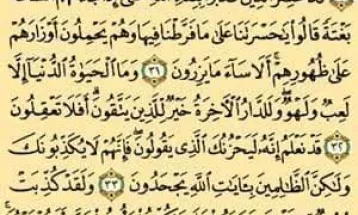 بَغْتَةً قَالُوا۟ يَٰحَسْرَتَنَا عَلَىٰ مَا فَرَّطْنَا فِيهَا وَهُمْ يَحْمِلُونَ أَوْزَارَهُمْ
عَلَىٰ ظُهُورِهِمْ ۚ أَلَا سَآءَ مَا يَزِرُونَ ٣١ وَمَا ٱلْحَيَوٰةُ ٱلدُّنْيَآ إِلَّا
لَعِبٌ وَلَهْوٌ ۖ وَلَلدَّارُ ٱلْءَاخِرَةُ خَيْرٌ لِّلَّذِينَ يَتَّقُونَ ۗ أَفَلَا تَعْقِلُونَ
٣٢ قَدْ نَعْلَمُ إِنَّهُۥ لَيَحْزُنُكَ ٱلَّذِى يَقُولُونَ ۖ فَإِنَّهُمْ لَا يُكَذِّبُونَكَ
وَلَٰكِنَّ ٱلظَّٰلِمِينَ بِـَٔايَٰتِ ٱللَّهِ يَجْحَدُونَ ٣٣ وَلَقَدْ كُذِّبَتْ